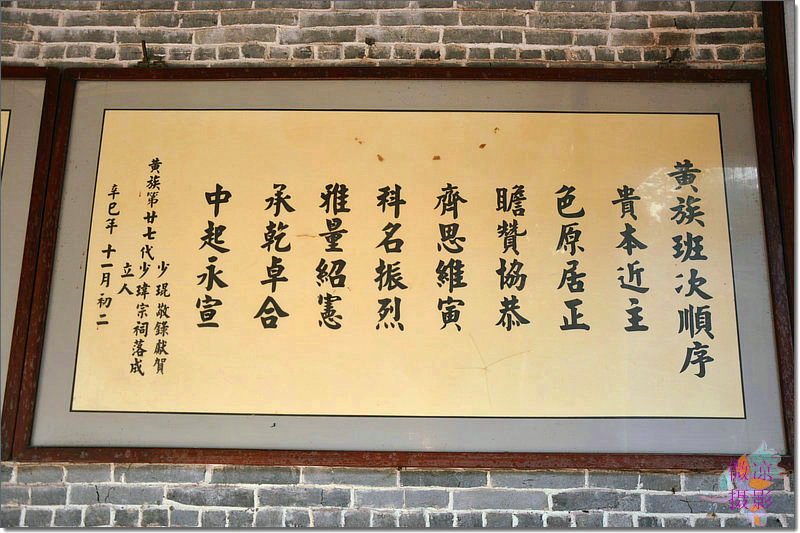 黄族班次順序
貴本近主
色原居正
瞻贊協恭
齊思維寅
科名振烈
雅量紹憲
承乾卓合
中起永宣
黄族第廿七代少琨敬錄獻賀
立人少瑋宗祠落成
辛巳年十一月初二
摄影